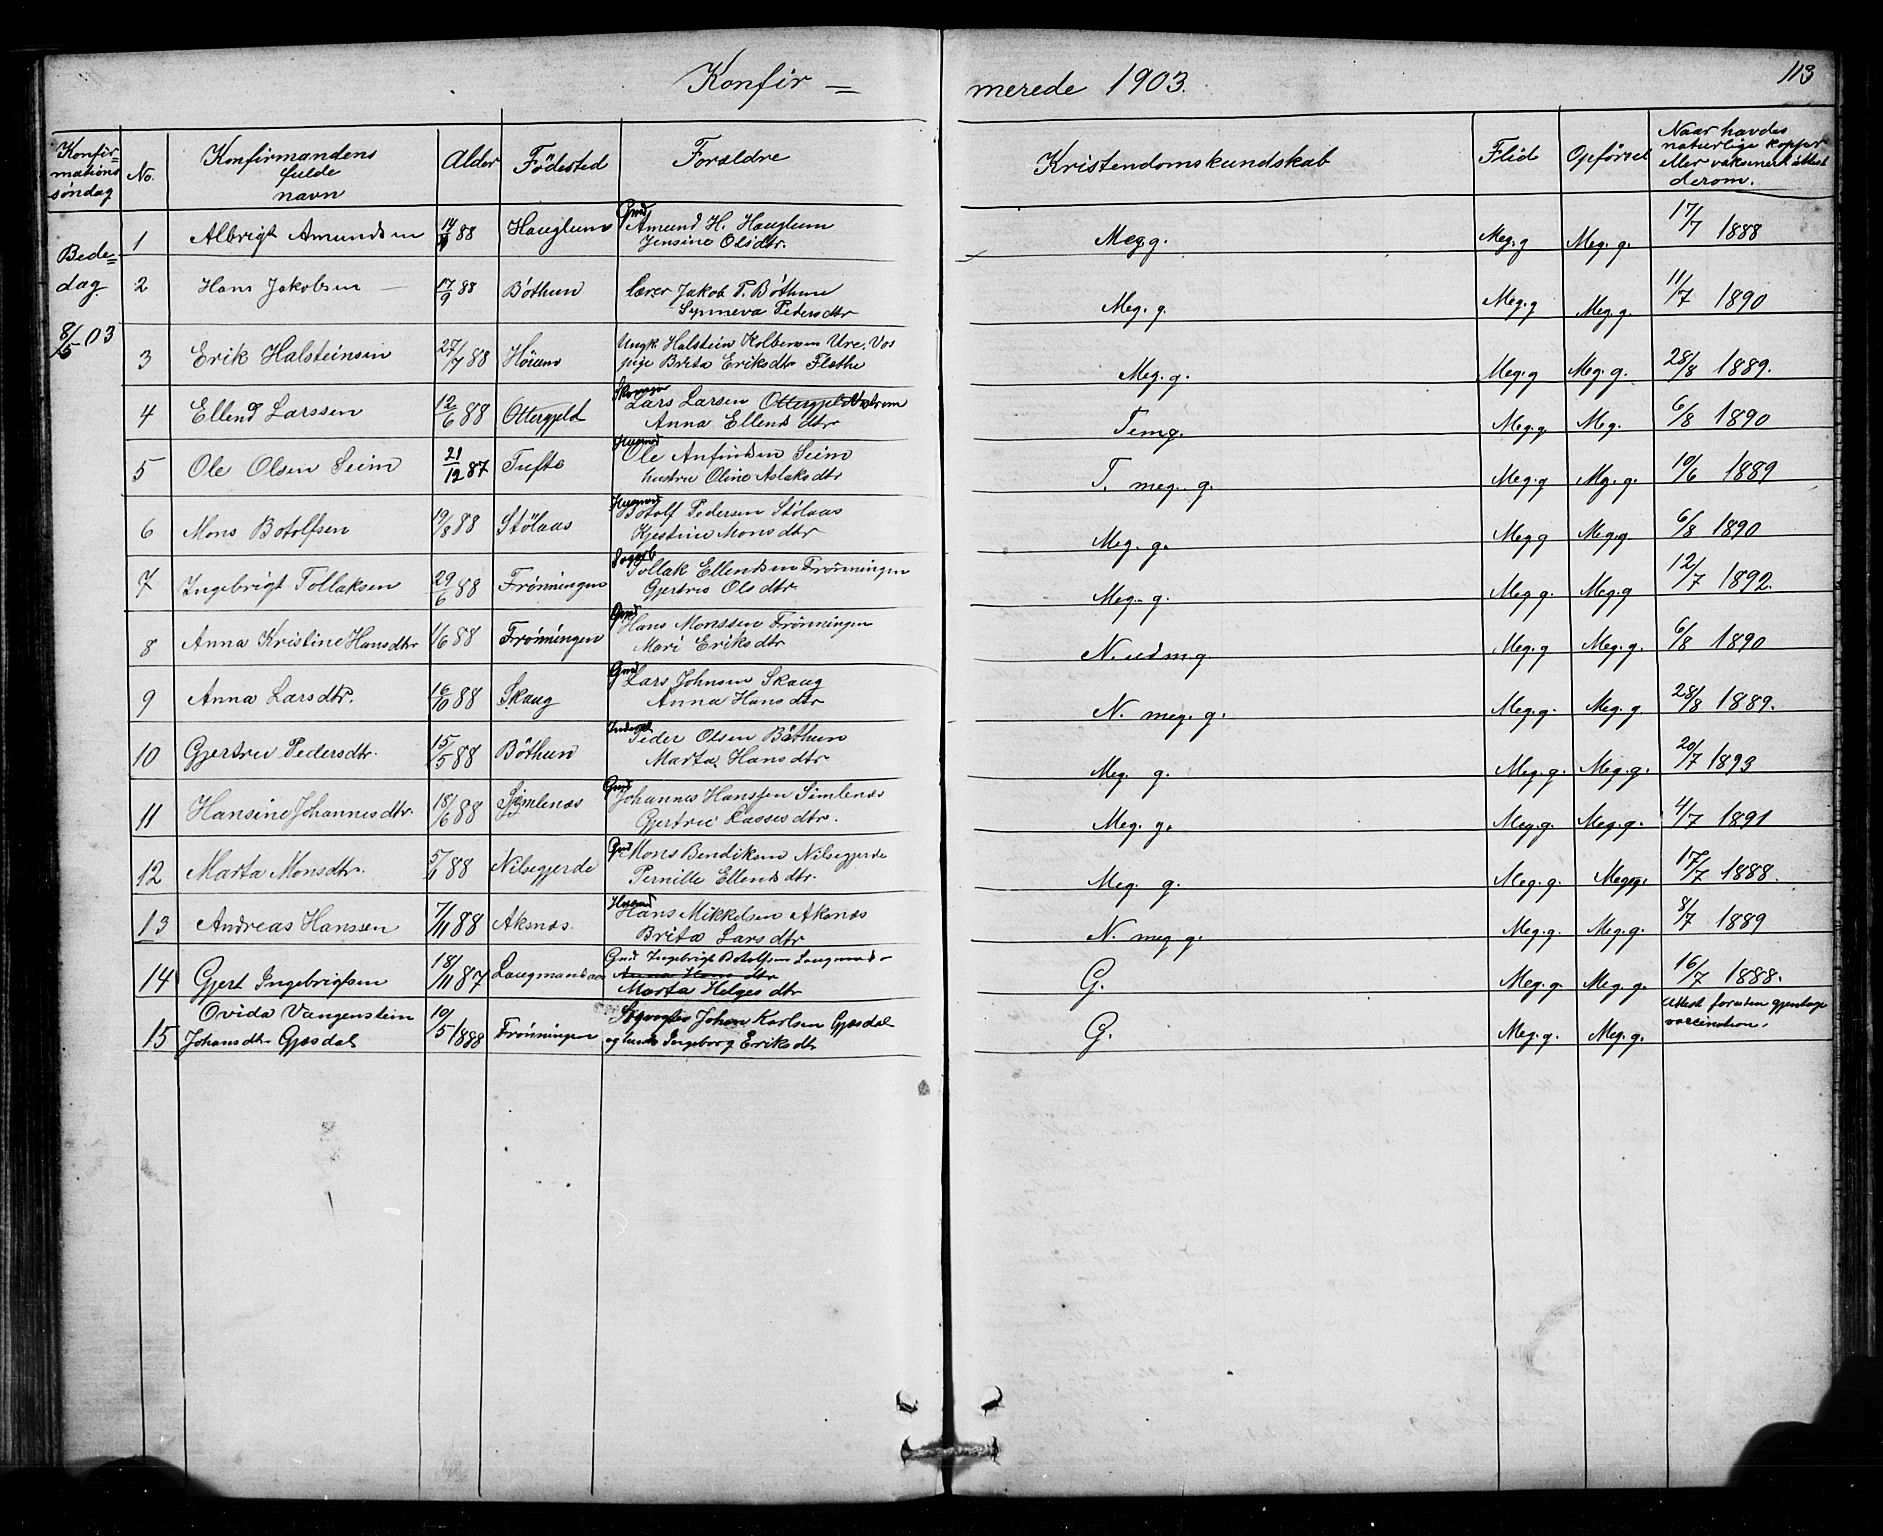 Konfir = merede 1903. 113
Konfir= mations søndag No. Konfirmandens fulde navn Alder Födested Forældre Kristendomskundskab Flid Opførsel Naar havdes naturlige kopper eller vakcinert attest derom.
Bede= dag. 8/5 03
1 Albrigt Amundsen 88 Hauglum Gmd Amund H. Hauglum Meg.g. Meg.g Meg.g. 17/7 1888
Jensine Olsdtr.
2 Hans Jakobsen 17/9 88 Böthun lærer Jakob P. Böthun Meg.g. Meg.g Meg.g. 11/7 1890
Synneva Pedersdtr
3 Erik Halsteinsen 27/7 88 Ungk. Halstein Kolbensen Ure, Vos Meg.g. Meg.g Meg.g. 28/8 1889.
pige Brita Eriksdtr Flæthe
4 Ellend Larssen 12/6 88 Ottergjeld Lars Larsen Ottergjeld Temg. Meg.g Meg. 6/8 1890
Anna Ellends dtr
5 Ole Olsen Seim 21/12 87 Tufte Husmd Ole Anfindsen Seim T. meg. g. Meg.g Mg.g. 10/6 1889
hustru Oline Aslaksdtr
6 Mons Botolfsen 19/8 88 Stölaas Husmd Botolf Pedersen Stölaas Meg. g. Meg.g Meg.g 6/8 1890
Kjestine Monsdtr
7 Ingebrigt Tollaksen 29/6 88 Frönningen Tollak Ellendsen Frönningen Meg. g. Meg.g. Meg.g 12/7 1892.
Gjertrud Olsdtr
8 Anna Kristine Hansdtr 88 Frönningen Gmd Hans Monssen Frönningen N. udm.g Meg.g Meg.g. 6/8 1890
Mari Eriksdtr
9 Anna Larsdtr. 16/10 88 Skaug Gmd Lars Johnsen Skaug N. meg. g. Meg.g. Meg.g. 28/8 1889.
Anna Hansdtr
10 Gjertru Pedersdtr. 15/5 88 Böthun Peder Olsen Böthun Meg. g. Meg.g. Meg.g. 20/7 1893
Marta Hansdtr
11 Hansine Johannesdtr. 18/6 88 Simlenæs Gmd Johannes Hanssen Simlenæs Meg. g. Meg.g. Meg.g. 4/7 1891
Gjertrud Lassesdtr.
12 Marta Monsdtr. 88 Nilsegjerde Gmd Mons Bendiksen Nilsegjerde Meg. g. Meg.g. Meg.g. 17/7 1888.
Pernille Ellendsdtr.
13 Andreas Hanssen 7/11 88 Aksnæs. Husmd Hans Mikkelsen Aksnæs N. meg g. Meg.g. Meg.g. 8/7 1889
Brita Larsdtr
14 Gjert Ingebrigtsen 18/11 87 Gmd Ingebrigt Botolfsen G. Meg.g. Meg.g. 16/7 1888.
Anna Hansdtr
Marta Helgesdtr
15 Ovida Vangenstein Johansdtr Gjesdal 10/5 1888 Frönningen Johan Karlsen Gjesdal G. Meg.g. Meg.g. Attest foruten gjentage vaccination.
og Ingeborg Eriksdtr